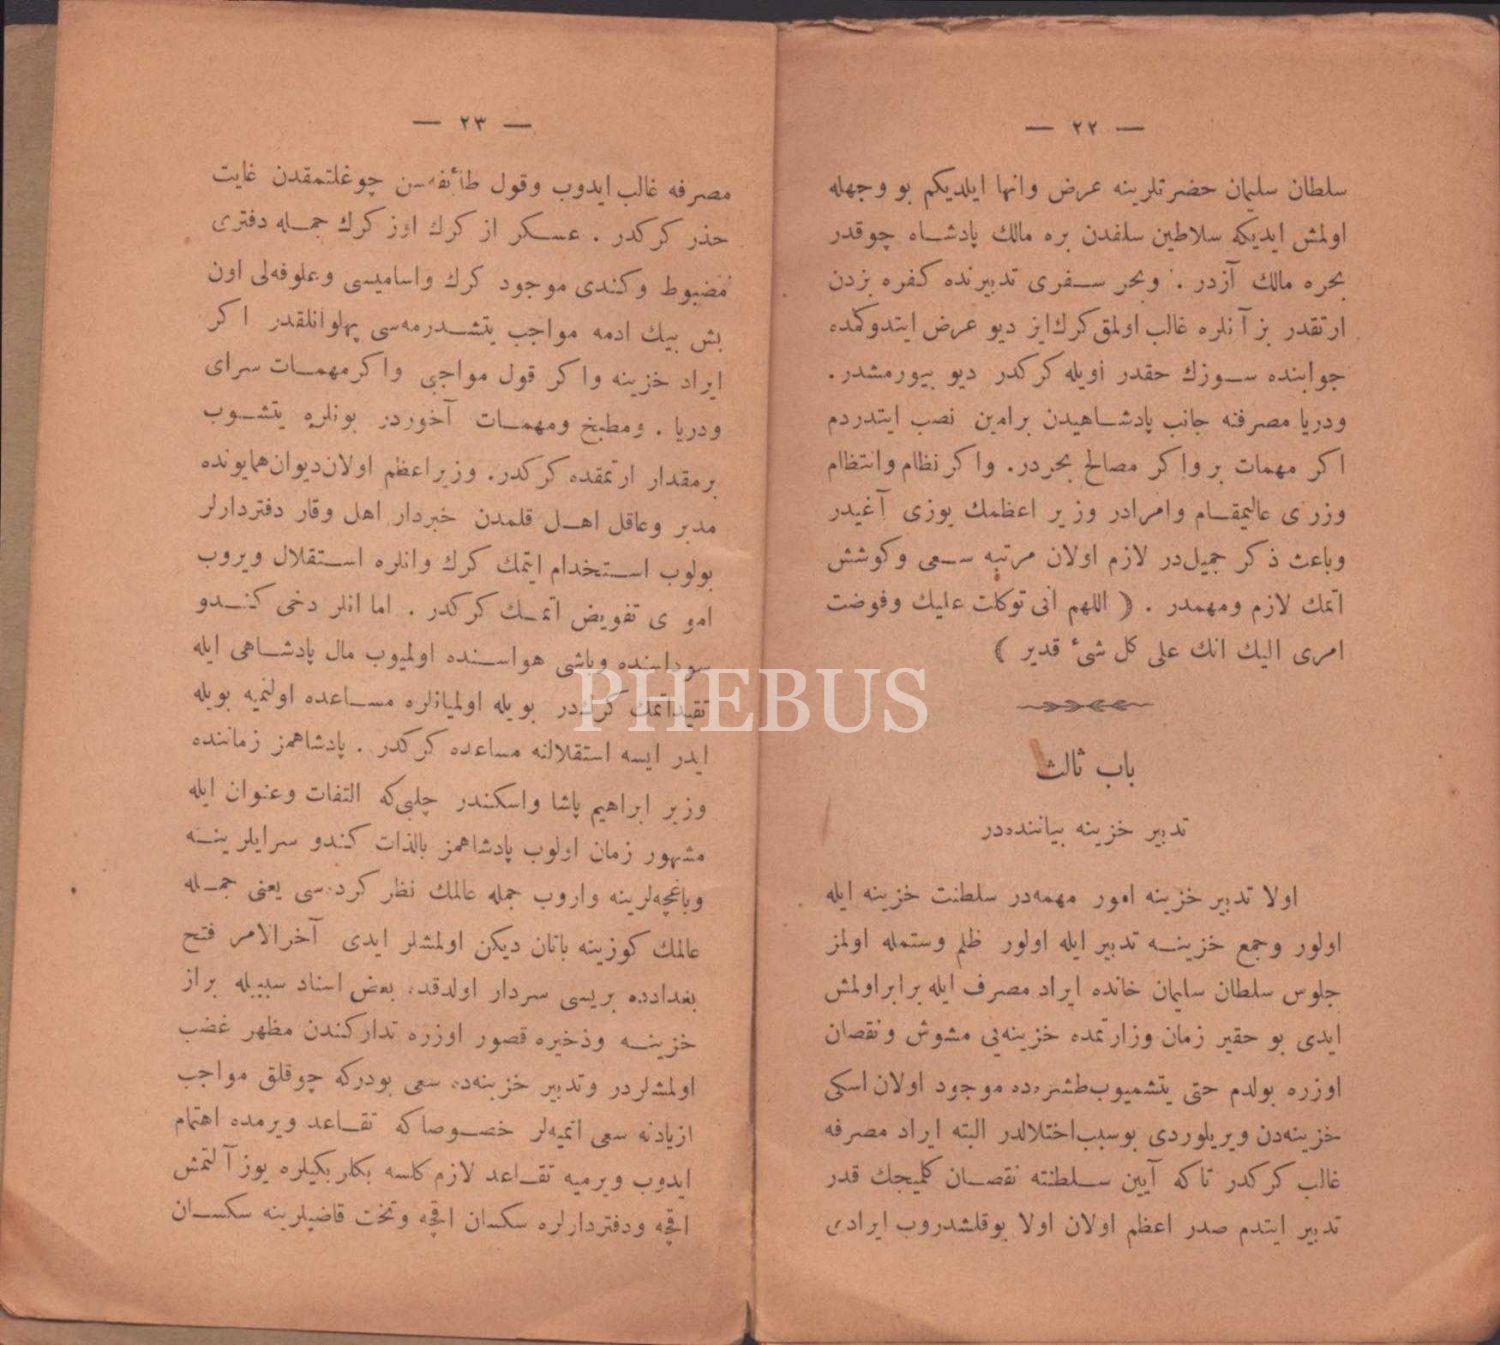 — ٢٢ —
سلطان سليمان حضرتلرينه عرض وانها ايلديكم بو وجهله
اولمش ايديكه سلاطين سلفدن بره مالك پادشاه چوقدر
بحره مالك آزدر . وبحر سفرى تدبيرنده كفره بزدن
ارتقدر بز آنلره غالب اولمق كرك‌ايز ديو عرض ايتدوكمده
جوابنده سوزك حقدر اويله كركدر ديو بيورمشدر.
ودريا مصرفنه جانب پادشاهيدن برامين نصب ايتدردم
اكر مهمات بر واكر مصالح بحردر. واكر نظام وانتظام
وزرى عاليمقام وامرادر وزير اعظمك يوزى آغيدر
وباعث ذكر جميل‌در لازم اولان مرتبه سعى وكوشش
اتمك لازم ومهمدر . ( اللهم انى توكلت عليك وفوضت
امرى اليك انك على كل شىٔ قدير )
باب ثالث
تدبير خزينه بياننده‌در
اولا تدبير خزينه امور مهمه‌در سلطنت خزينه ايله
اولور وجمع خزينه تدبير ايله اولور ظلم وستمله اولمز
جلوس سلطان سليمان خانده ايراد مصرف ايله برابراولمش
ايدى بو حقير زمان وزارتمده خزينه‌يى مشوش ونقصان
اوزره بولدم حتى يتشميوب طشره‌ده موجود اولان اسكى
خزينه‌دن ويريلوردى بوسبب‌اختلالدر البته ايراد مصرفه
غالب كركدر تاكه آيين سلطنته نقصان كلميجك قدر
تدبير ايتدم صدر اعظم اولان اولا بوقلشدروب ايرادى
— ٢٣ —
مصرفه غالب ايدوب وقول طائفه‌سن چوغلتمقدن غايت
حذر كركدر . عسكر از كرك اوز كرك جمله دفترى
مضبوط وكندى موجود كرك واساميسى وعلوفه‌لى اون
بش بيك ادمه مواجب يتشدرمه‌سى پهلوانلقدر اكر
ايراد خزينه واكر قول مواجبى واكرمهمات سراى
ودريا . ومطبخ ومهمات آخوردر بونلره يتشوب
برمقدار ارتمقده كركدر. وزيراعظم اولان‌ديوان‌همايونده
مدبر وعاقل اهل قلمدن خبردار اهل وقار دفتردارلر
بولوب استخدام ايتمك كرك وانلره استقلال ويروب
امو ى تفويض اتمك كركدر . اما انلر دخى كندو
سوداسنده وياشى هواسنده اولميوب مال پادشاهى ايله
تقيداتمك كركدر بويله اولميانلره مساعده اولنميه بويله
ايدر ايسه استقلالنه مساعده كركدر . پادشاهمز زماننده
وزير ابراهيم پاشا واسكندر چلبى‌كه التفات وعنوان ايله
مشهور زمان اولوب پادشاهمز بالذات كندو سرايلرينه
وباغچه‌لرينه واروب جمله عالمك نظر كرده‌سى يعنى جمله
عالمك كوزينه باتان ديكن اولمشلر ايدى آخرالامر فتح
بغدادده بريسى سردار اولدقده بعض اسناد سببيله براز
خزينه وذخيره قصور اوزره تداركندن مظهر غضب
اولمشلردر وتدبير خزينه‌ده سعى بودركه چوقلق مواجب
ازيادنه سعى اتميه‌لر خصوصاكه تقاعد ويرمده اهتمام
ايدوب ويرميه تقاعد لازم كلسه بكلربكيلره يوز آلتمش
اقچه ودفتردارلره سكسان اقچه وتخت قاضيلرينه سكسان
PHEBUS